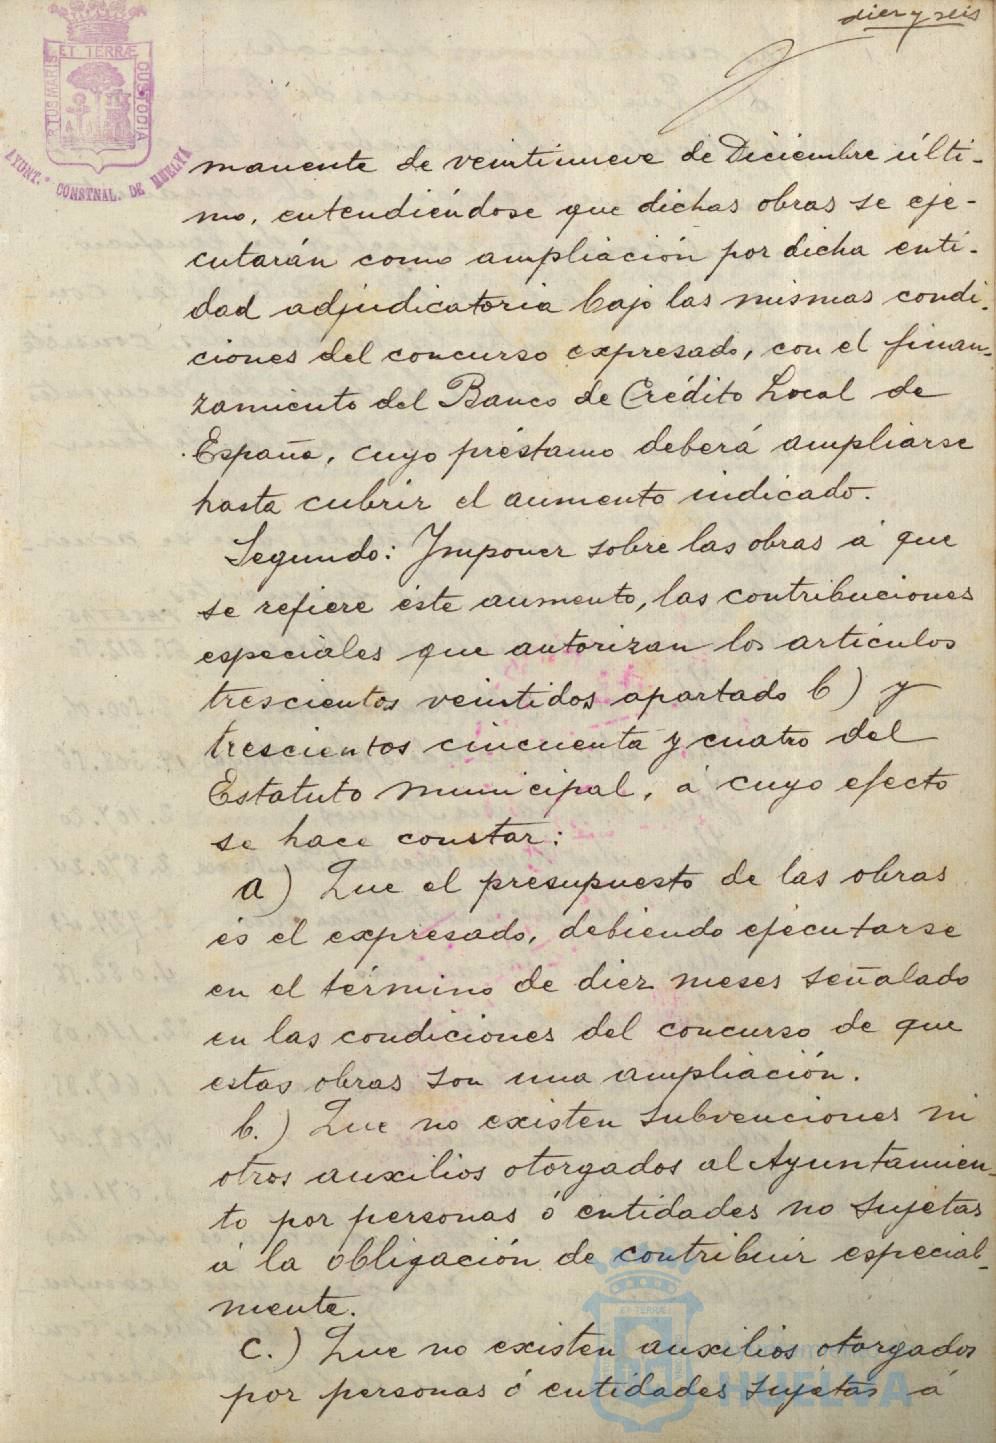 diez y seis
PORTUS MARIS ET TERRÆ CUSTODIA
AYUNT.º CONSTNAL. DE HUELVA
manente de veintinueve de Diciembre últi-
mo, entendiéndose que dichas obras se eje-
cutarán como ampliación por dicha enti-
dad adjudicatoria bajo las mismas condi-
ciones del concurso expresado, con el finan-
zamiento del Banco de Crédito Local de
España, cuyo préstamo deberá ampliarse
hasta cubrir el aumento indicado.
Segundo: Imponer sobre las obras á que
se refiere éste aumento, las contribuciones
especiales que autorizan los artículos
trescientos veintidos apartado b) y
trescientos cincuenta y cuatro del
Estatuto municipal, á cuyo efecto
se hace constar:
a) Que el presupuesto de las obras
és el expresado, debiendo ejecutarse
en el término de diez meses señalado
en las condiciones del concurso de que
estas obras son una ampliación.
b.) Que no existen subvenciones ni
otros auxilios otorgados al Ayuntamien-
to por personas ó entidades no sujetas
á la obligación de contribuir especial-
mente.
c.) Que no existen auxilios otorgados
por personas ó entidades sujetas á
HUELVA